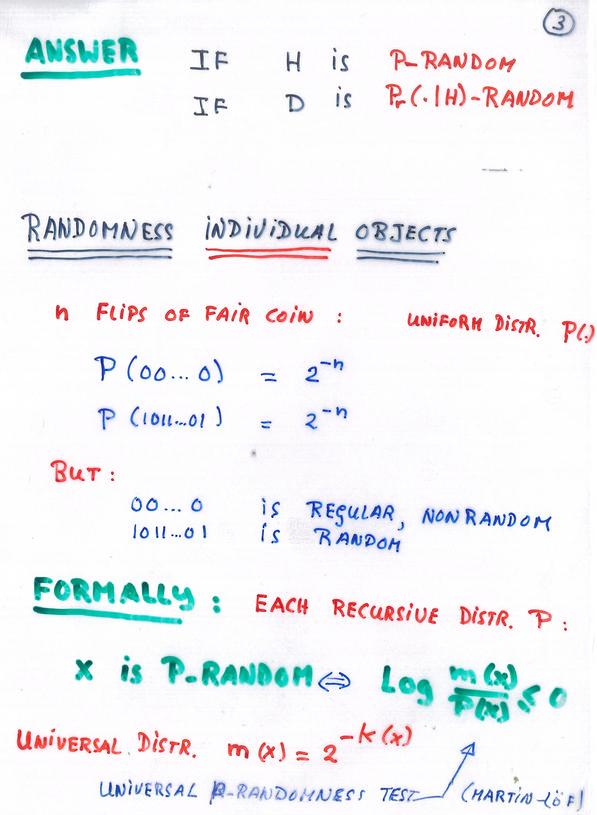 3
ANSWER IF H is P-RANDOM
IF D is Pr(.|H)-RANDOM
RANDOMNESS INDIVIDUAL OBJECTS
n FLIPS OF FAIR COIN : UNIFORM DISTR. P(.)
P(00...0) = 2^-n
P(1011...01) = 2^-n
BUT :
00...0 is REGULAR, NONRANDOM
1011...01 is RANDOM
FORMALLY : EACH RECURSIVE DISTR. P :
X is P-RANDOM ⇔ Log m(x)/P(x) ≤ 0
UNIVERSAL DISTR. m(x) = 2^-K(x)
UNIVERSAL P-RANDOMNESS TEST (MARTIN-LÖF)